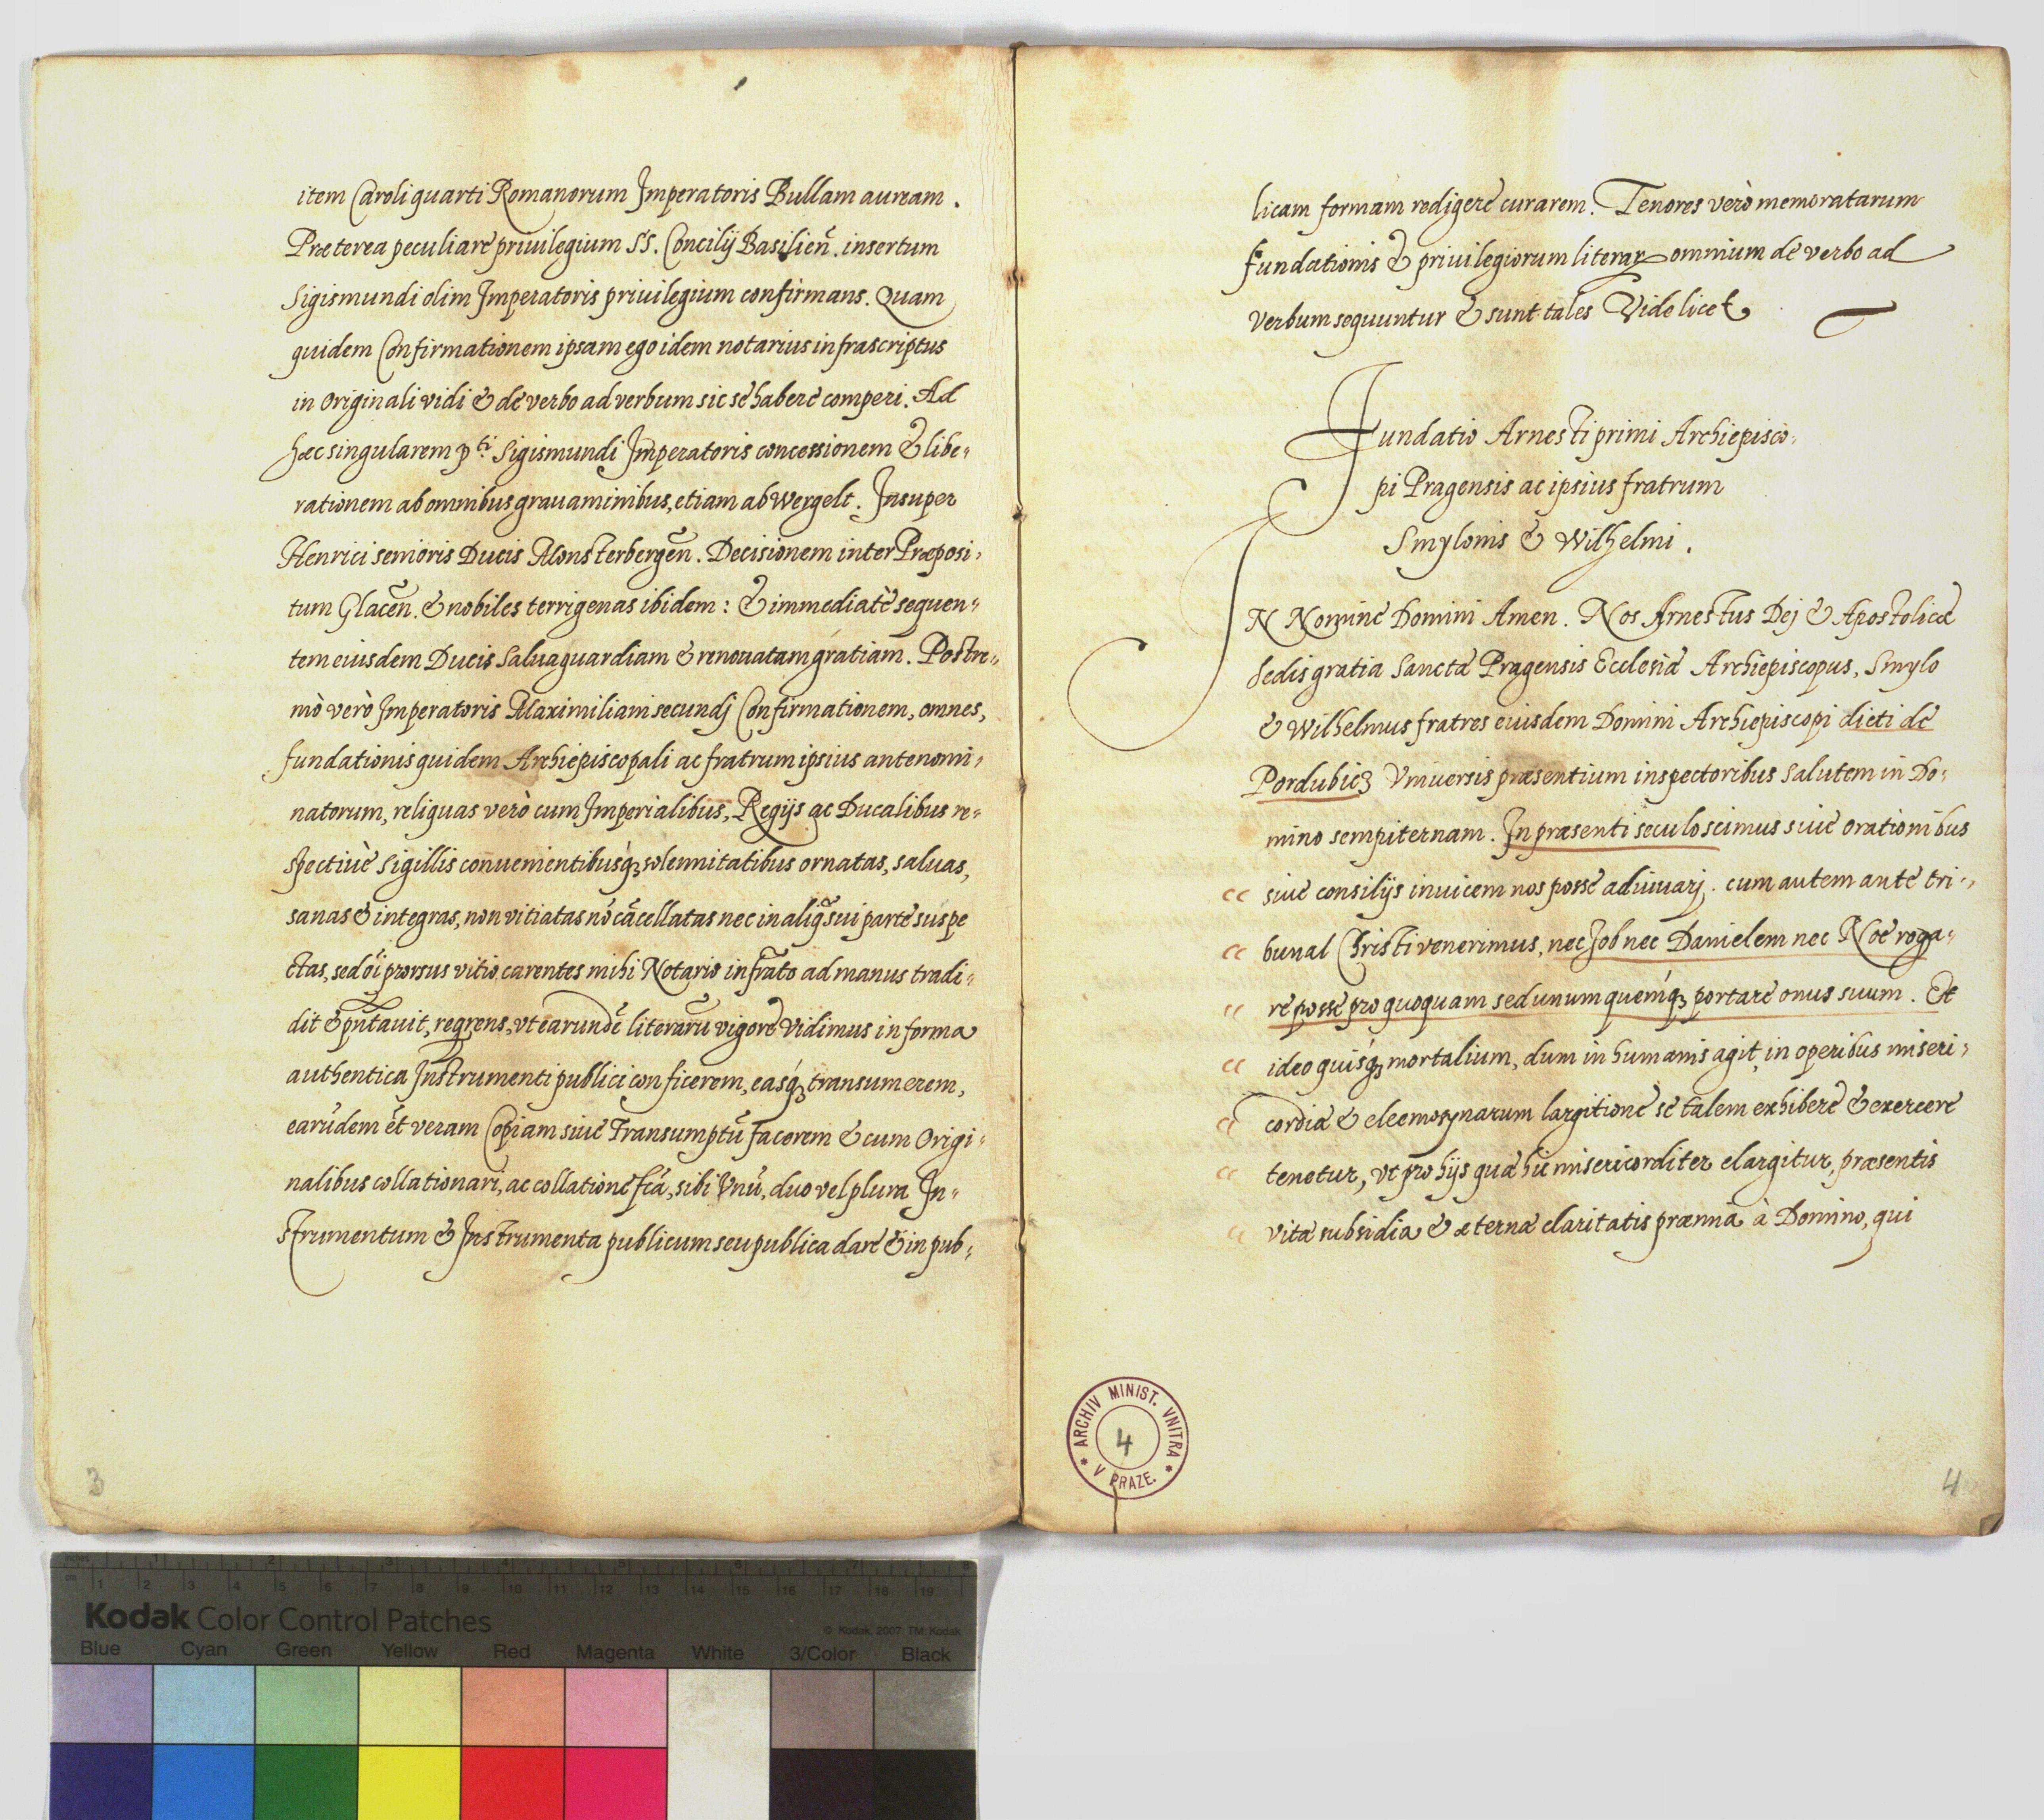 item Caroli quarti Romanorum Imperatoris Bullam auream.
Præterea peculiare priuilegium SS. Concilij Basilieñ. insertum
Sigismundi olim Imperatoris priuilegium confirmans. Quam
quidem Confirmationem ipsam ego idem notarius infrascriptus
in Originali vidi & de verbo ad verbum sic se habere comperi. Ad
hæc singularem p.ti Sigismundi Imperatoris concessionem & libe-
rationem ab omnibus grauaminibus, etiam ab Wergelt. Insuper
Henrici senioris Ducis Monsterbergeñ. Decisionem inter Præposi-
tum Glaceñ. & nobiles terrigenas ibidem: & immediatè sequen-
tem eiusdem Ducis Saluaguardiam & renouatam gratiam. Postre-
mò verò Imperatoris Maximiliani secundj Confirmationem, omnes,
fundationis quidem Archiepiscopali ac fratrum ipsius antenomi-
natorum, reliquas verò cum Imperialibus, Regijs ac Ducalibus re-
spectiuè Sigillis conuenientibusq́ʒ solennitatibus ornatas, saluas,
sanas & integras, non vitiatas nō cācellatas nec in aliq̃ sui parte suspe
ctas, sed oī prorsus vitio carentes mihi Notario infrāto ad manus tradi-
dit & pn̄tauit, reqrens, vt earundē literarū vigore Vidimus in forma
authentica Instrumenti publici conficerem, easq́ʒ transumerem,
earūdem ēt veram Copiam siue Transumptū facerem & cum Origi-
nalibus collationari, ac collatione fcā, sibi Vnū, duo vel plura In-
strumentum & Instrumenta publicum seu publica dare & in pub-
3
licam formam redigere curarem. Tenores verò memoratarum
fundationis & priuilegiorum literar omnium de verbo ad
Verbum sequuntur & sunt tales Videlicet
Fundatio Arnesti primi Archiepisco-
pi Pragensis ac ipsius fratrum
Smylonis & Wilhelmi.
IN Nomine Domini Amen. Nos Arnestus Dej & Apostolicæ
Sedis gratia Sanctæ Pragensis Ecclesiæ Archiepiscopus, Smylo
& Wilhelmus fratres eiusdem Domini Archiepiscopi dicti de
Pordubicʒ Vniuersis præsentium inspectoribus Salutem in Do-
mino sempiternam. In præsenti seculo scimus siue orationibus
siue consilijs inuicem nos posse adiuuarj. cum autem ante tri-
bunal Christi venerimus, nec Job nec Danielem nec Noe roga-
re posse pro quoquam sed unumquemq́ʒ portare onus suum. Et
ideo quisq́ʒ mortalium, dum in humanis agit, in operibus miseri-
cordiæ & eleemosynarum largitione se talem exhibere & exercere
tenetur, vt pro hijs quæ hic misericorditer elargitur, præsentis
vitæ subsidia & æternæ claritatis præmia à Domino, qui
ARCHIV MINIST. VNITRA
V PRAZE.
4
4
Kodak Color Control Patches
© Kodak, 2007 TM: Kodak
Blue Cyan Green Yellow Red Magenta White 3/Color Black